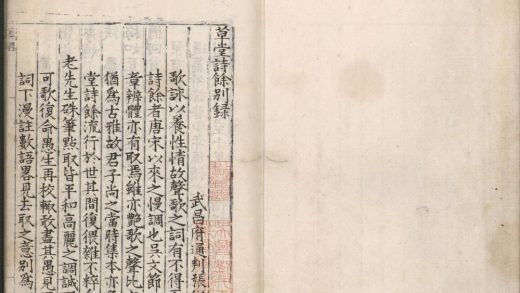 草堂詩餘別録
武昌府通判張
歌詠以養性情故聲歌之詞有不得
詩餘者唐宋以來之慢調也吳文節
章辨體亦有取焉雖亦艶歌之聲比
猶為古雅故君子尚之當時集本亦多
堂詩餘流行於世其間復猥雜不粹今
老先生硃筆㸃取皆平和高麗之調誠
可歌復命愚生再校輙敢盡其愚見
詞下漫註數語畧見去取之意别為